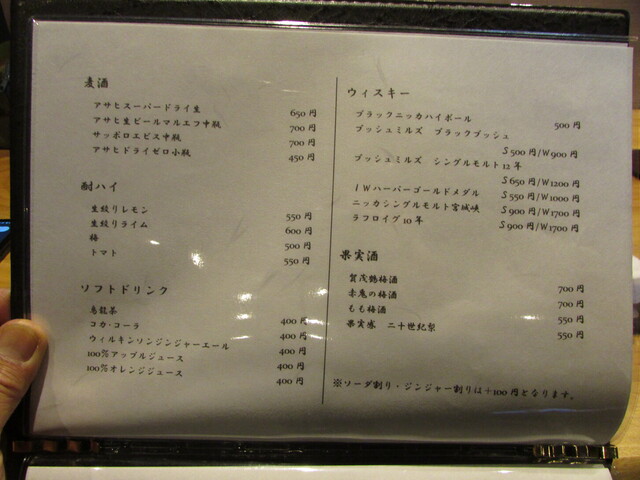 麦酒
アサヒスーパードライ生 650円
アサヒ生ビールマルエフ中瓶 700円
サッポロエビス中瓶 700円
アサヒドライゼロ小瓶 450円
酎ハイ
生絞りレモン 550円
生絞りライム 600円
梅 500円
トマト 550円
ソフトドリンク
烏龍茶 400円
コカ・コーラ 400円
ウィルキンソンジンジャーエール 400円
100%アップルジュース 400円
100%オレンジジュース 400円
ウィスキー
ブラックニッカハイボール 500円
ブッシュミルズ ブラックブッシュ
S500円/W900円
ブッシュミルズ シングルモルト12年
S650円/W1200円
IWハーパーゴールドメダル S550円/W1000円
ニッカシングルモルト宮城峡 S900円/W1700円
ラフロイグ10年 S900円/W1700円
果実酒
賀茂鶴梅酒 700円
赤鬼の梅酒 700円
もも梅酒 550円
果実感 二十世紀梨 550円
※ソーダ割り・ジンジャー割りは+100円となります。